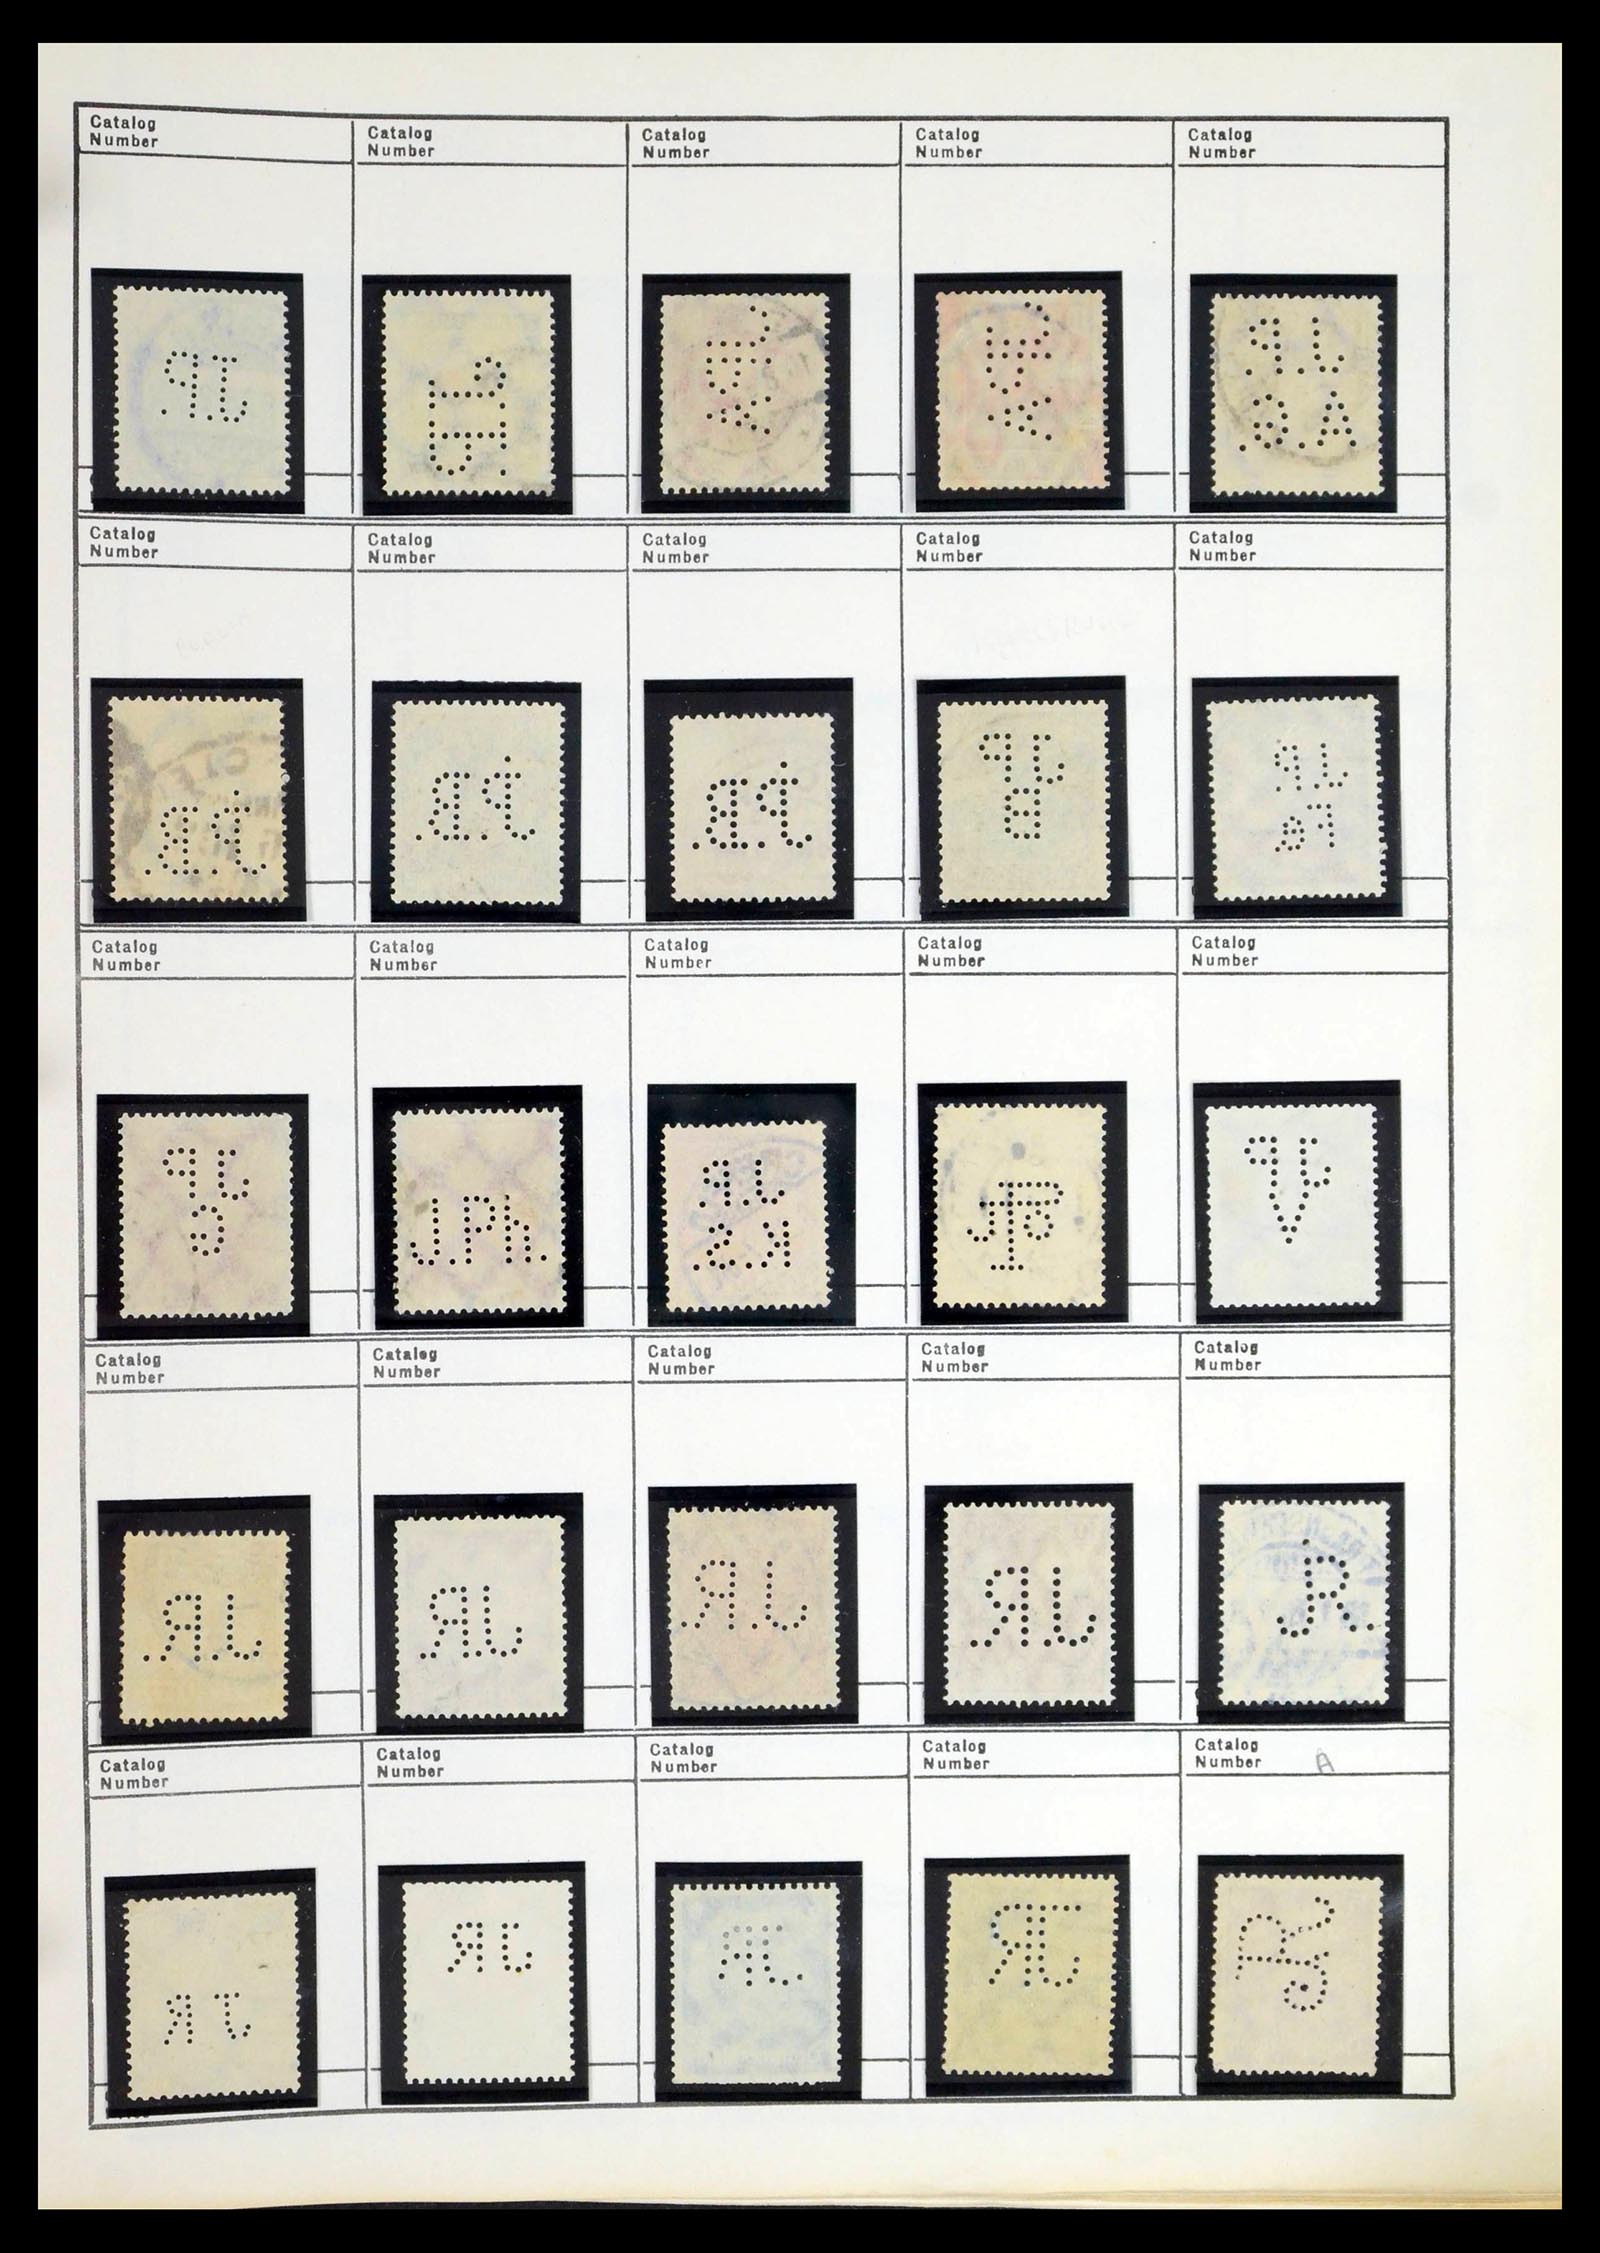 Catalog Number
Catalog Number
Catalog Number
Catalog Number
Catalog Number
J.P.
J.P.
A.G.
Catalog Number
Catalog Number
Catalog Number
Catalog Number
Catalog Number
J.P.B.
J.P.B.
J.P.B.
JP
B
JP
Fe
Catalog Number
Catalog Number
Catalog Number
Catalog Number
Catalog Number
J.P.
G
J.Ph.
JP
K.S.
JP
V
Catalog Number
Catalog Number
Catalog Number
Catalog Number
Catalog Number
J.R.
J.R.
J.R.
J.R.
J.R.
Catalog Number
Catalog Number
Catalog Number
Catalog Number
Catalog Number A
JR
JR
JR
JR